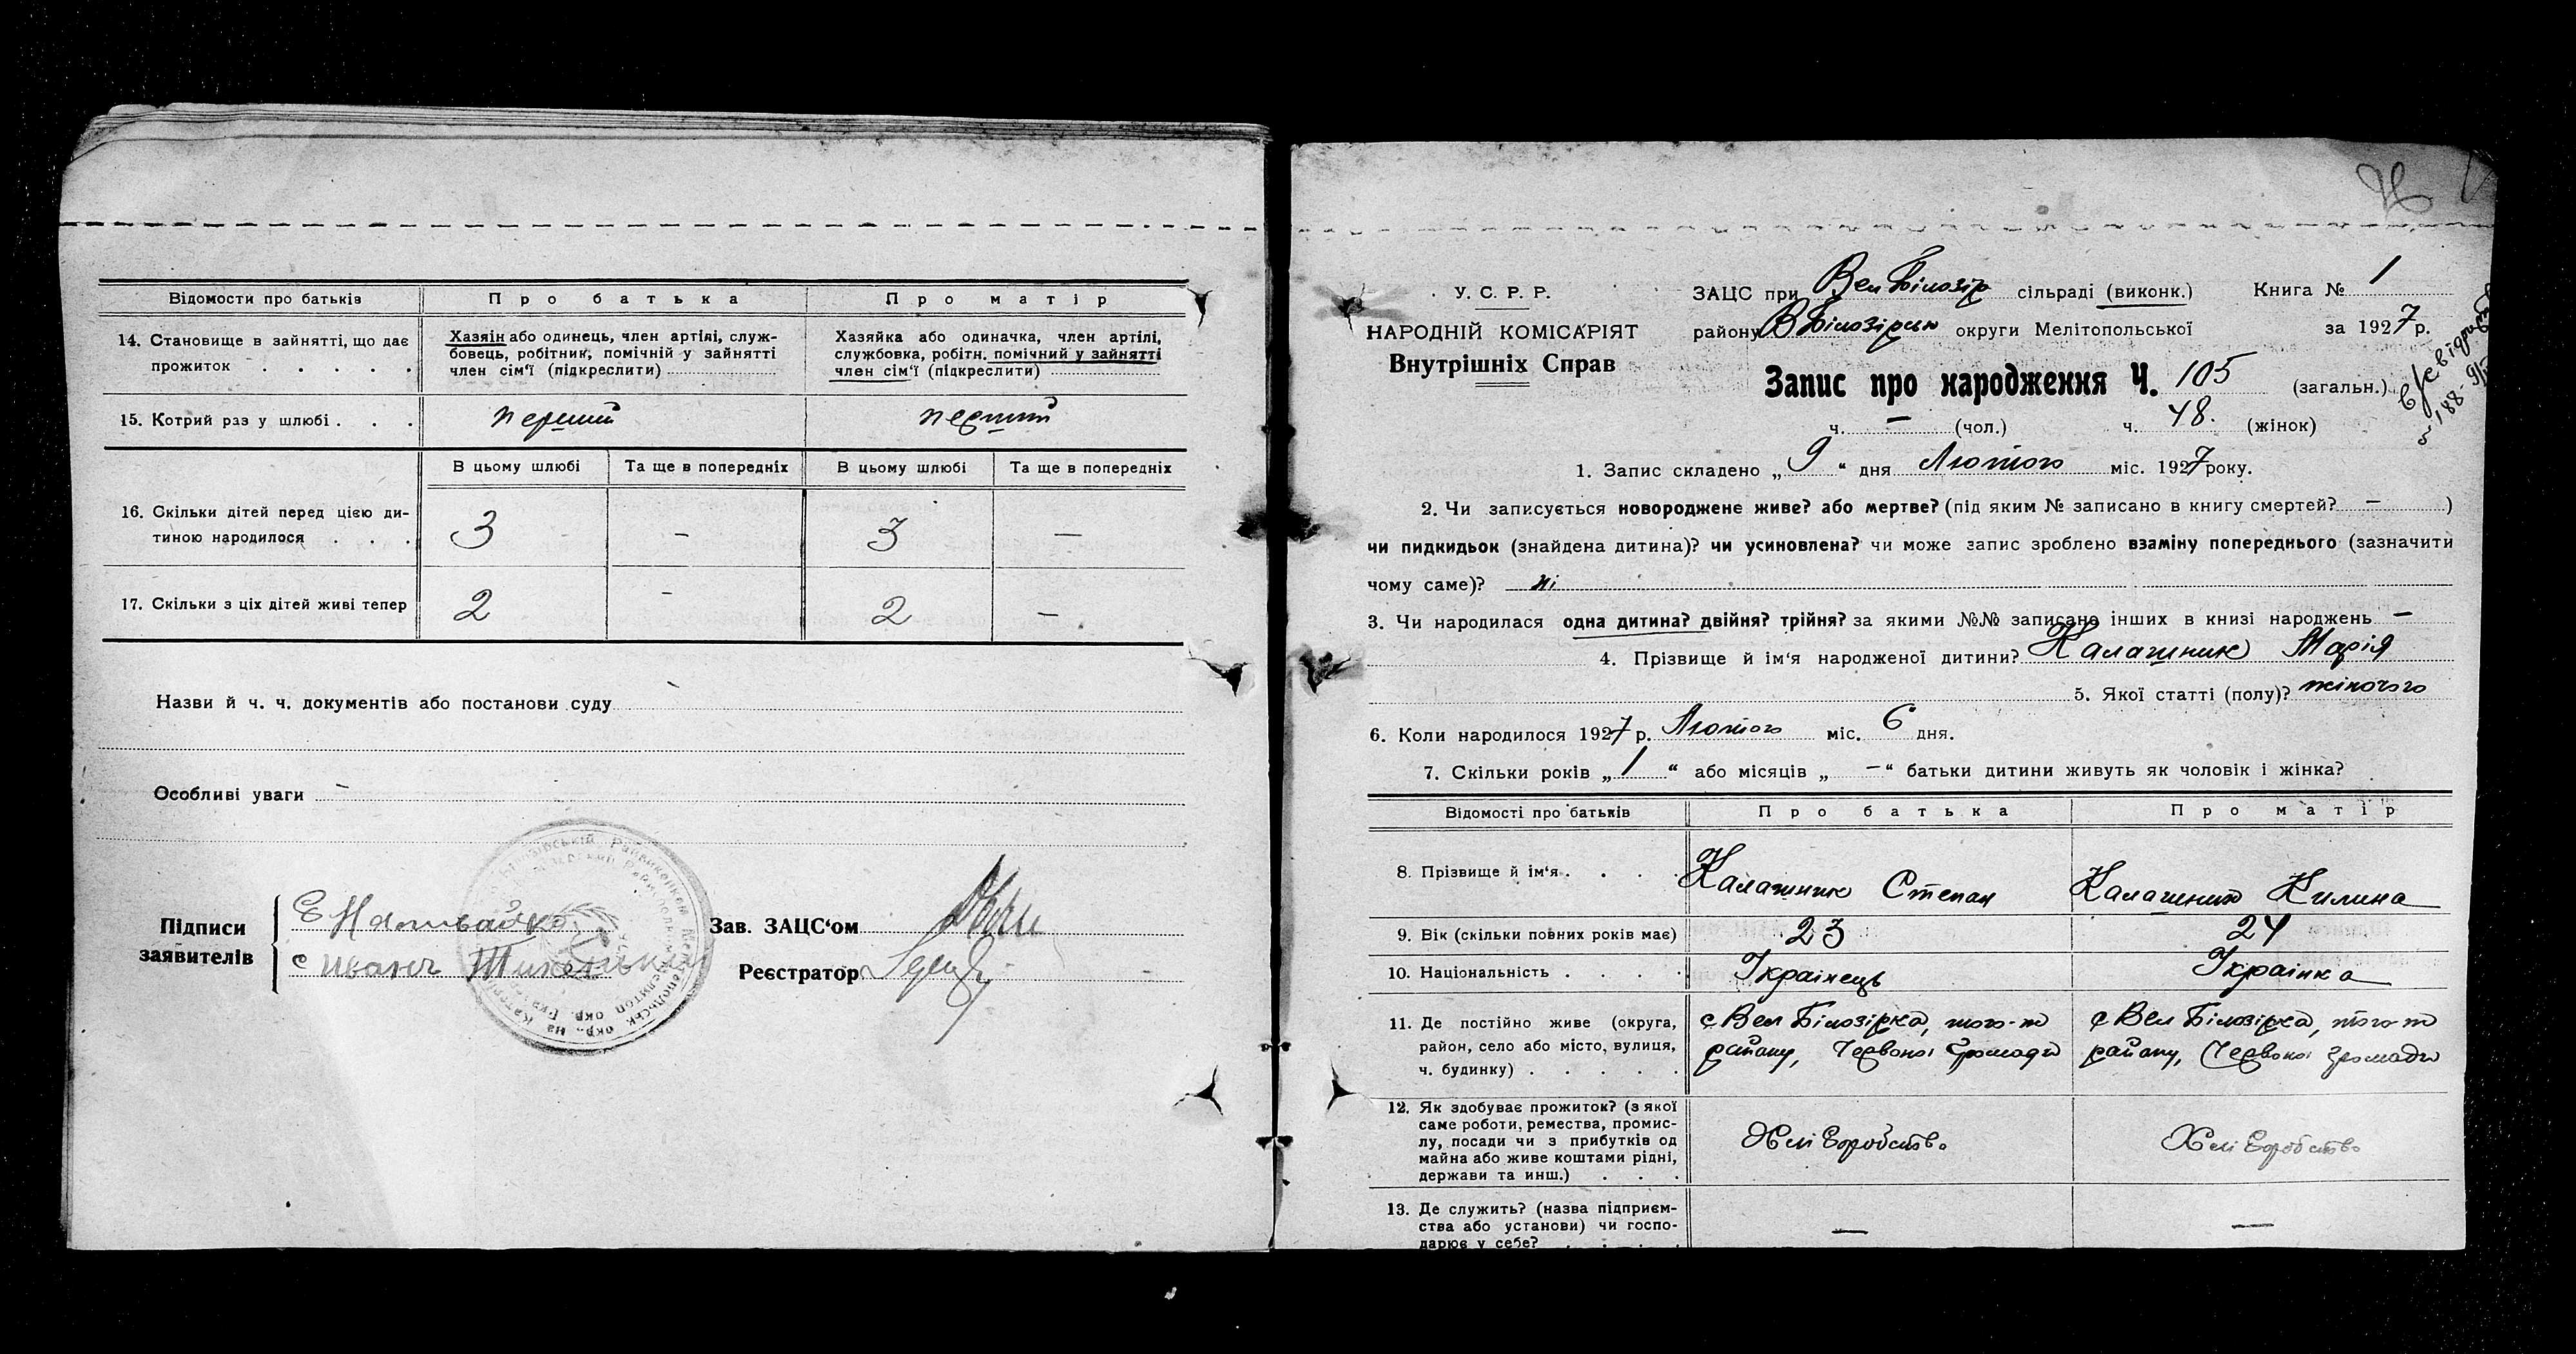 Відомости про батьків Про батька Про матір
14. Становище в зайнятті, що дає прожиток
Хазяін або одинець, член артілі, служ-
бовець, робітник, помічній у зайнятті
член сім'ї (підкреслити)
Хазяйка або одиначка, член артілі,
службовка, робітн. помічний у зайнятті
член сім'ї (підкреслити)
15. Котрий раз у шлюбі перший перший
В цьому шлюбі Та ще в попередніх В цьому шлюбі Та ще в попередніх
16. Скільки дітей перед цією ди-
тиною народилося 3 - 3 -
17. Скільки з ціх дітей живі тепер 2 - 2 -
Назви й ч. ч. документів або постанови суду
Особливі уваги -
Підписи
заявителів
Зав. ЗАЦС'ом
Реєстратор
У. С. Р. Р.
НАРОДНІЙ КОМІСАРІЯТ
Внутрішніх Справ
ЗАЦС при Вел Білозір сільраді (виконк.) Книга № 1
району В Білозірськ округи Мелітопольської за 1927 р.
Запис про народження Ч. 105 (загальн.)
ч. - (чол.) ч. 48. (жінок)
1. Запис складено „ 9 “ дня Лютого міс. 1927 року.
2. Чи записується новороджене живе? або мертве? (під яким № записано в книгу смертей? - )
чи пидкидьок (знайдена дитина)? чи усиновлена? чи може запис зроблено взаміну попереднього (зазначити
чому саме)? ні
3. Чи народилася одна дитина? двійня? трійня? за якими №№ записано інших в книзі народжень -
4. Прізвище й ім'я народженої дитини? Калашник Марія
5. Якої статті (полу)? жіночого
6. Коли народилося 1927 р. Лютого міс. 6 дня.
7. Скільки років „ 1 “ або місяців „ - “ батьки дитини живуть як чоловік і жінка?
Відомості про батьків Про батька Про матір
8. Прізвище й ім'я Калашник Степан Калашник Килина
9. Вік (скільки повних років має) 23 24
10. Національність Українець Українка
11. Де постійно живе (округа,
район, село або місто, вулиця,
ч. будинку)
с Вел Білозірка, того-ж
району, Червоної Громади
с Вел Білозірка, того-ж
району, Червоної громади
12. Як здобуває прожиток? (з якої
саме роботи, ремества, промис-
лу, посади чи з прибутків од
майна або живе коштами рідні,
держави та инш.)
Хліборобство Хліборобство
13. Де служить? (назва підприєм-
ства або установи) чи госпо-
дарює у себе? - -